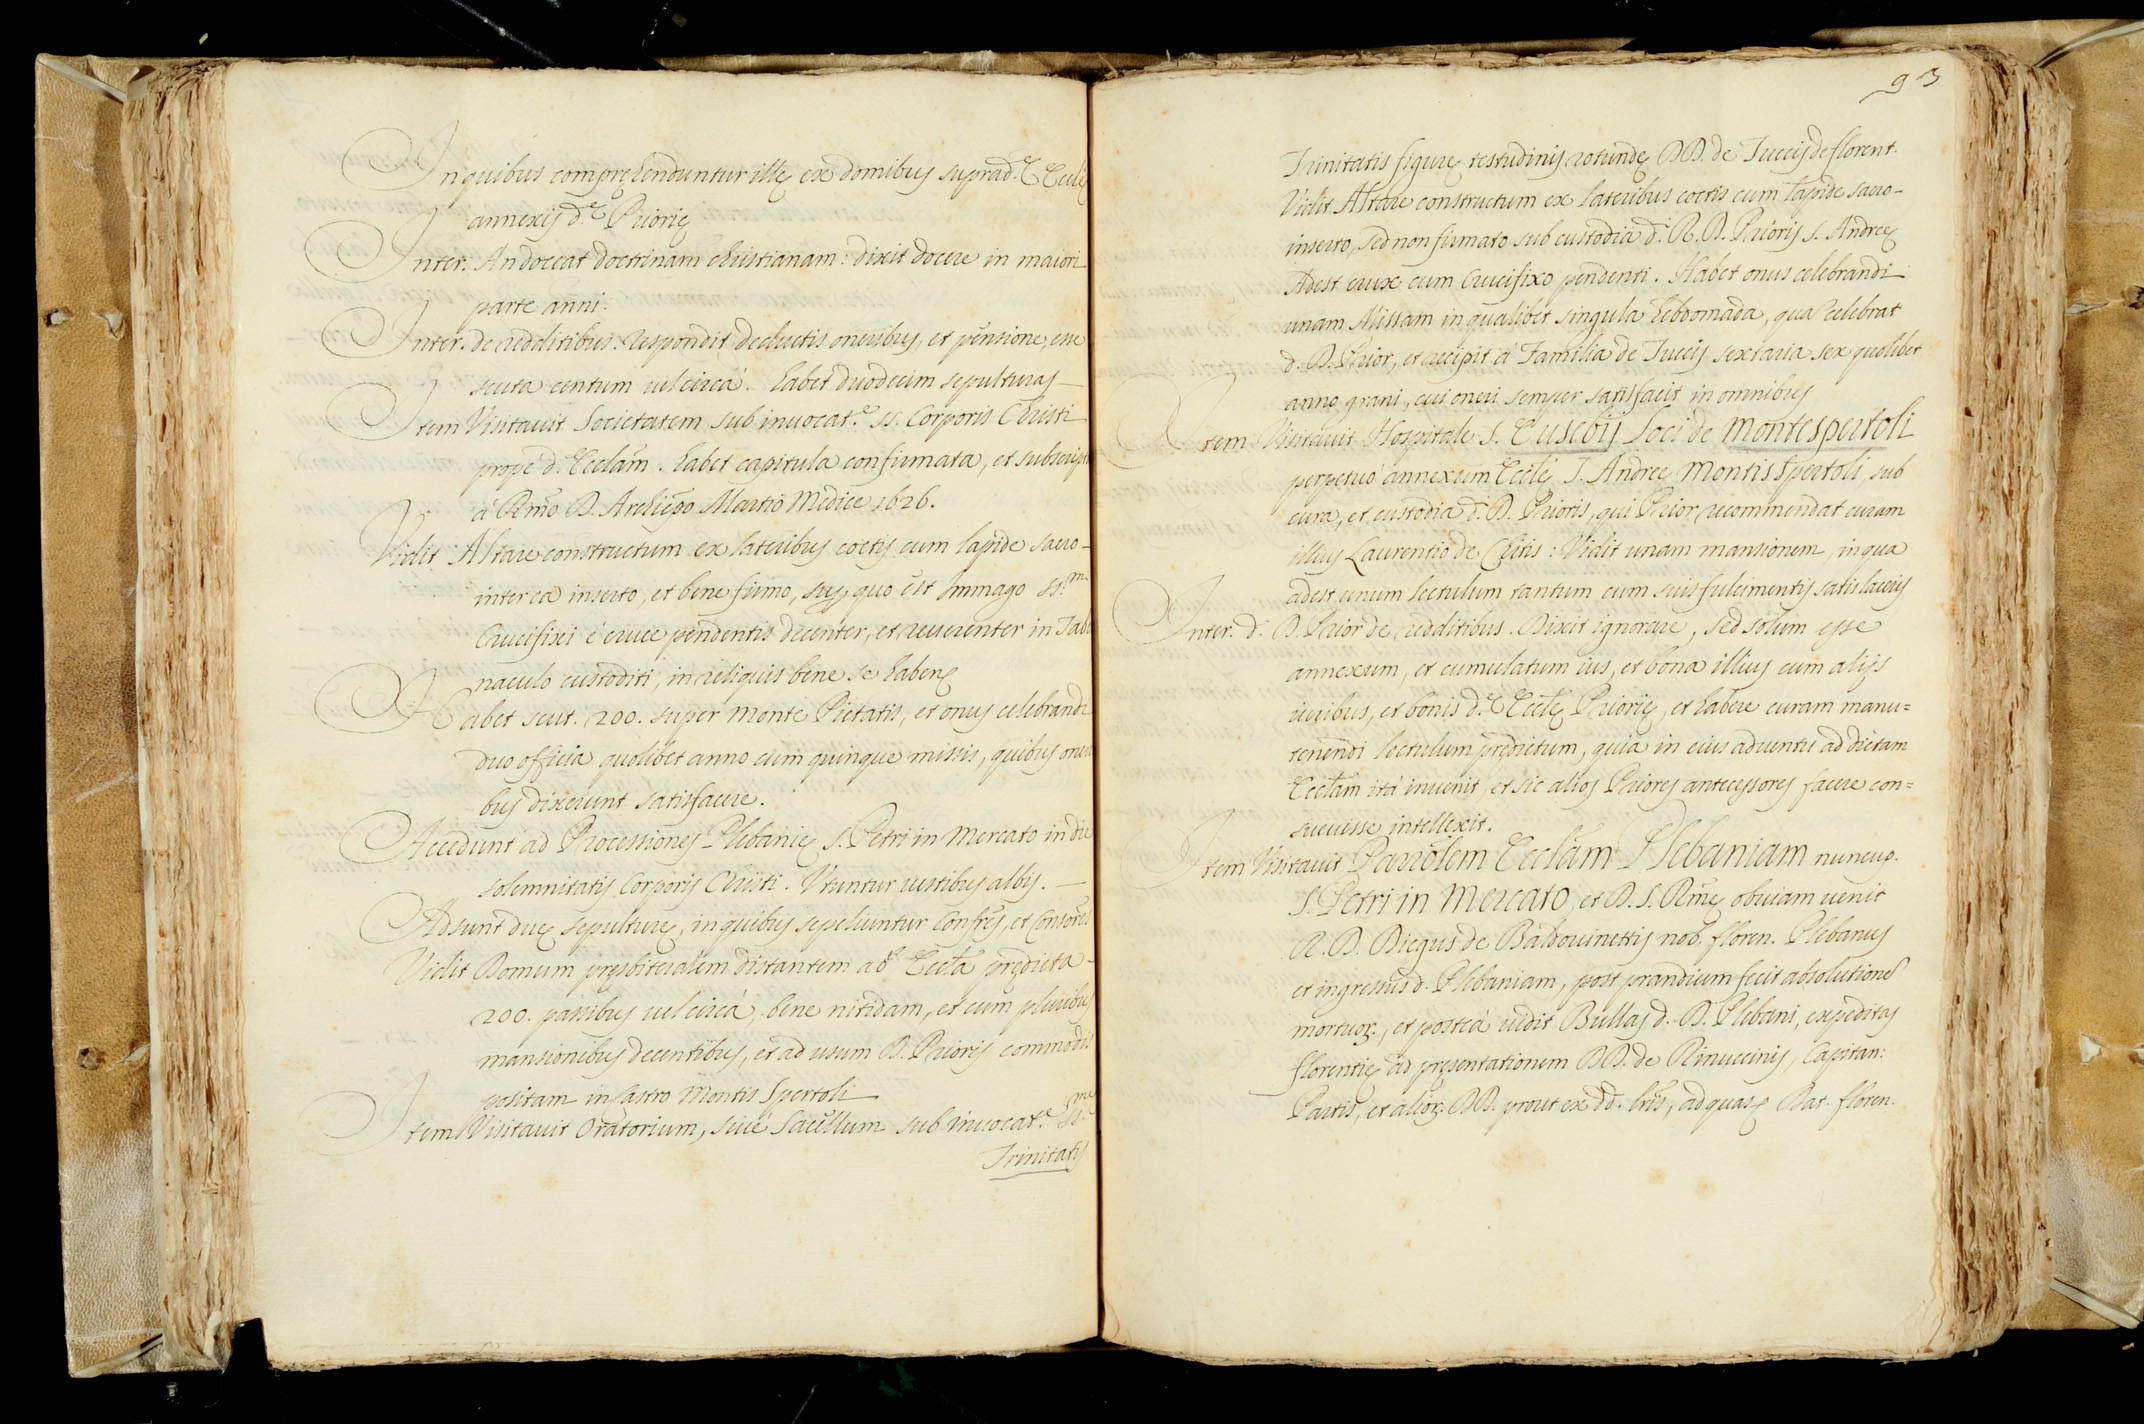 In quibus compręhenduntur illę ex domibus suprad.ę Ecclię
annexis d.ę Priorię
Inter. An doceat doctrinam christianam: dixit docere in maiori
parte anni.
Inter. de redditibus: respondit deductis oneribus, et pensione, esse
scuta centum vel circà. habet duodecim sepulturas —
Item Visitavit Societatem sub invocat.e ss. Corporis Christi
propè d. Ecclam. habet capitula confirmata, et subscripta
à Rmo D. Archiepo Martio Medice 1626.
Vidit Altare constructum ex lateribus coctis cum lapide sacro-
inter ea inserto, et bene firmo, sup quo est Immago ss.mi
Crucifixi è cruce pendentis decenter, et reverenter in Tab
naculo custoditi, in reliquis bene se habens
Habet scut. 200. super Monte Pietatis, et onus celebrandi
duo officia quolibet anno cum quinque missis, quibus oneri
bus dixerunt satisfacere.
Accedunt ad Processiones Plebanię S. Petri in Mercato in die
solemnitatis Corporis Christi. Utuntur vestibus albis. —
Adsunt duę sepulturę, in quibus sepeliuntur Confres, et Consores
Vidit Domum pręsbiteralem distantem ab Eccla prędicta-
200. passibus vel circà, bene nitidam, et cum pluribus
mansionibus decentibus, et ad usum D. Prioris commodis
positam in Castro Montis Spertoli
Item Visitavit Oratorium, sivè Sacellum sub invocat.e ss.mę
Trinitatis
93
Trinitatis figurę testudinis rotundę DD. de Tuccis de florent.
Vidit Altare constructum ex lateribus coctis cum lapide sacro-
inserto, sed non firmato sub custodia d. R. D. Prioris S. Andreę
Adest crux cum Crucifixo pendenti. Habet onus celebrandi
unam Missam in qualibet singula hebdomada, qua celebrat
d. D. Prior, et recipit à Familia de Tuccis sextaria sex quolibet
anno grani, cui oneri semper satisfacit in omnibus
Item Visitavit Hospitale S. Eusebij Loci de Montespertoli
perpetuò annexum Ecclię S. Andreę Montis Spertoli, sub
cura, et custodia d. D. Prioris, qui Prior recommendat curam
illius Laurentio de : Vidit unam mansionem, in qua
adest unum lectulum tantum cum suis fulcimentis satis laceris
Inter. d. D. Prior de redditibus. Dixit ignorare, sed solum esse
annexum, et cumulatum ius, et bona illius cum alijs
iuribus, et bonis d.ę Ecclę Priorię, et habere curam manu=
tenendi lectulum prędictum, quia in eius adventu ad dictam
Ecclam ità invenit, et sic alios Priores antecessores facere con=
suevisse intellexit.
Item Visitavit Parrolem Ecclam Plebaniam nuncup.
S. Petri in Mercato, et D. S. Rmę obviam venit
R. D. Diegus de Baldovinettis nob. floren. Plebanus
et ingressus d. Plebaniam, post prandium fecit absolutiones
mortuor., et posteà vidit Bullas d. D. Plebani, expeditas
florentię ad pręsentationem DD. de Rinuccinis, Capitan:
Partis, et alior. DD. prout ex dd. lris, ad quas, Dat. floren.